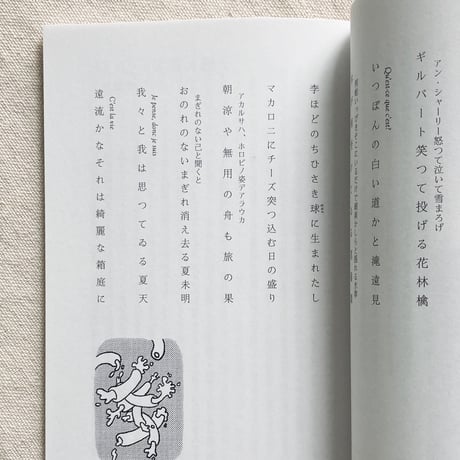 アン・シャーリー怒つて泣いて雪まろげ
ギルバート笑つて投げる花林檎
Qu'est-ce que c'est?
いつぽんの白い道かと滝遠見
李ほどのちひさき球に生まれたし
マカロニにチーズ突つ込む日の盛り
アカルサハ、ホロビノ姿デアラウカ
朝涼や無用の舟も旅の果
まぎれのない己と聞くと
おのれのないまぎれ消え去る夏未明
Je pense, donc je suis
我々と我は思つてゐる夏天
C'est la vie
遠流かなそれは綺麗な箱庭に